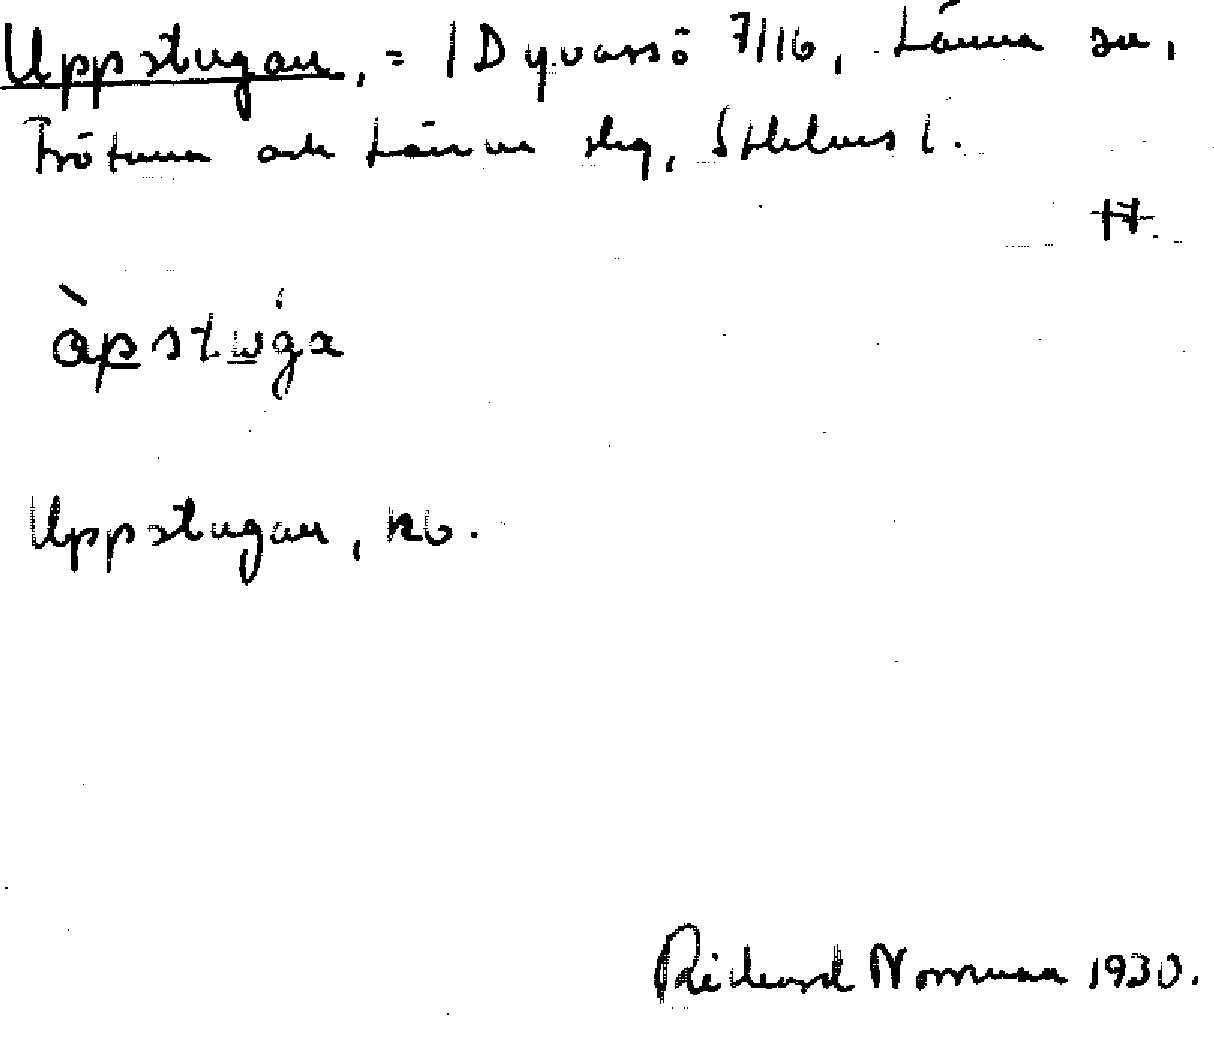 Uppstugan, = 1 Dyvassö 7/16, Länna sn,
Frötuna och Länna slg, Sthlms l.
àpstuga
Uppstugan, kb.
Richard Norrman 1930.